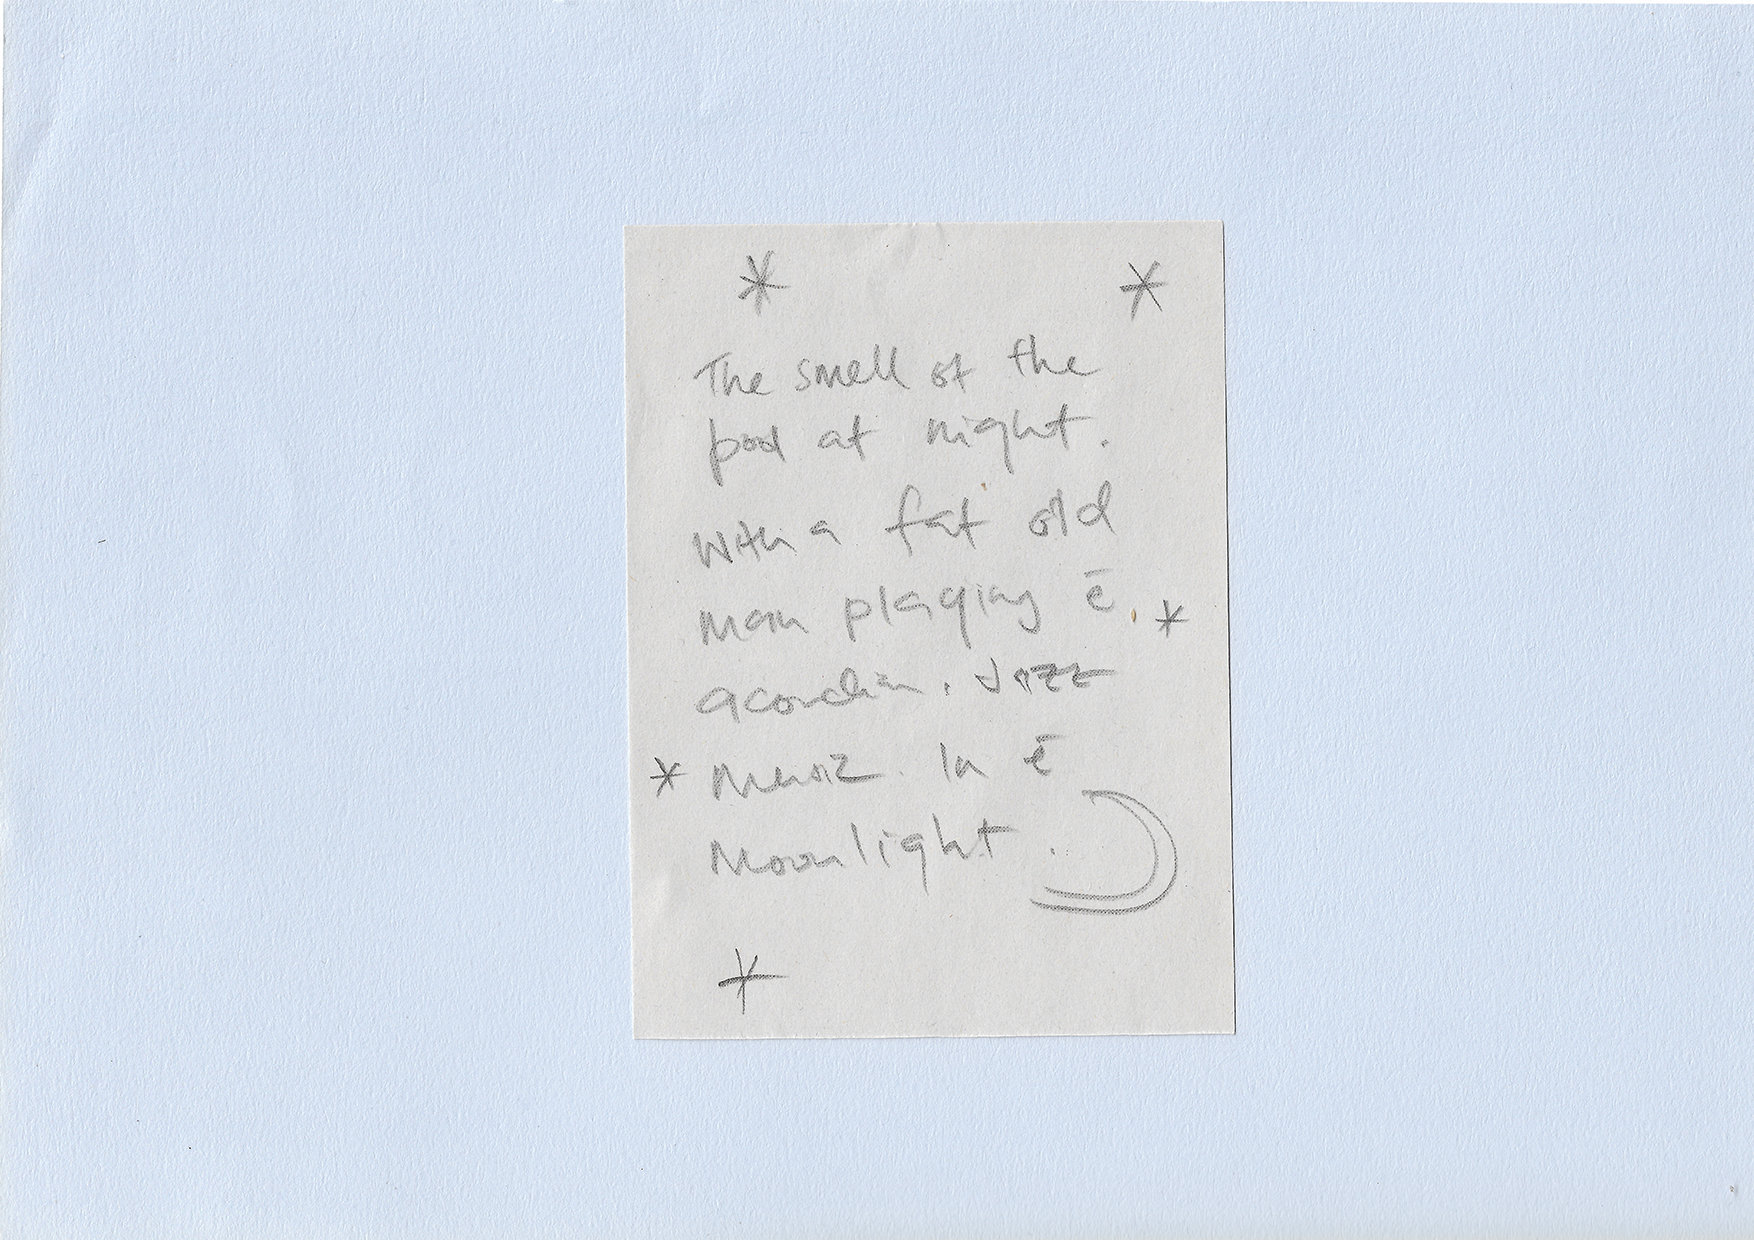 The smell of the
pool at night.
With a fat old
man playing ē
acordian. Jazz
Music. In ē
Moonlight.